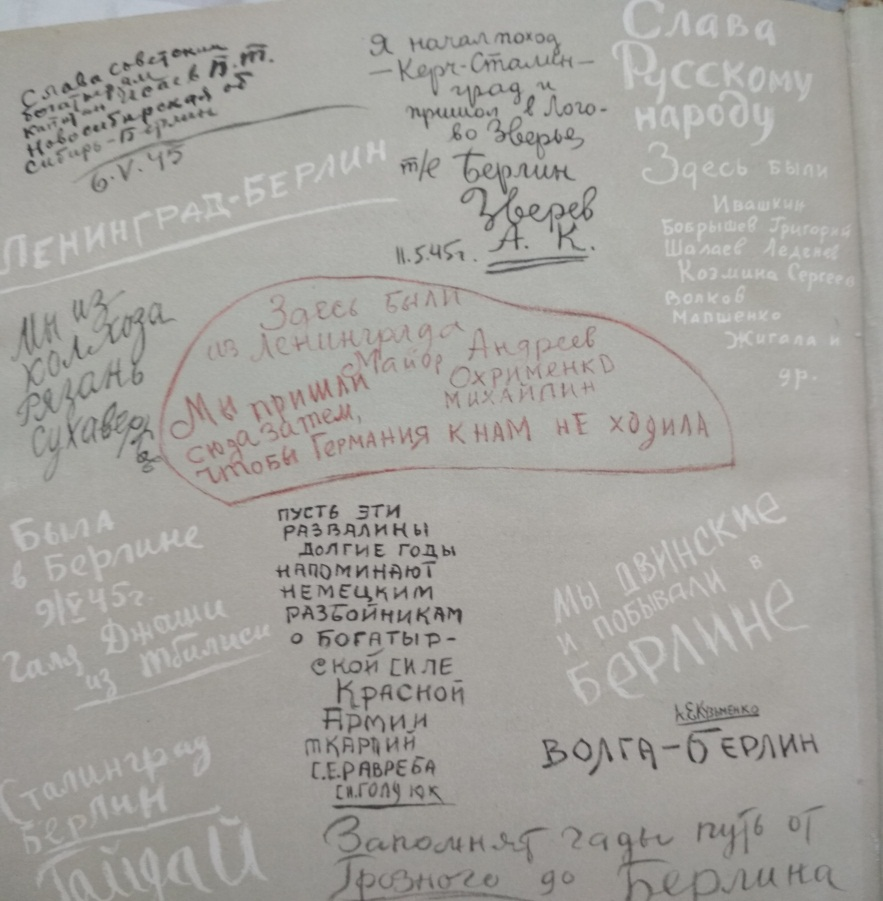 Слава советским
богатырям
капитан Исаев В.Т.
Новосибирская об
Сибирь-Берлин
6.V.45
Я начал поход
-Керч-Сталин-
град и
пришол в Лого-
во Зверьё
т/е Берлин
Зверев
11.5.45г. А. К.
Слава
Русскому
народу
Здесь были
Ивашкин
Бобрышев Григорий
Шалаев Леденев
Козмина Сергеев
Волков
Мапшенко
Жигала и
др.
ЛЕНИНГРАД-БЕРЛИН
Мы из
колхоза
Рязань
Сухавер
Здесь были
из Ленинграда
Майор Андреев
Охрименко
Михайлин
Мы пришли
сюда затем,
чтобы Германия к нам не ходила
Была
в Берлине
9/V 45г.
Галя Джаши
из Тбилиси
ПУСТЬ ЭТИ
РАЗВАЛИНЫ
ДОЛГИЕ ГОДЫ
НАПОМИНАЮТ
НЕМЕЦКИМ
РАЗБОЙНИКАМ
О БОГАТЫР-
СКОЙ СИЛЕ
КРАСНОЙ
АРМИИ
ТКАРПИЙ
С.Е.РАВРЕБА
МЫ ДВИНСКИЕ
И ПОБЫВАЛИ В
БЕРЛИНЕ
КУЗЬМЕНКО
ВОЛГА-БЕРЛИН
Сталинград
Берлин
Гайдай
Запомнят гады путь от
Грозного до Берлина